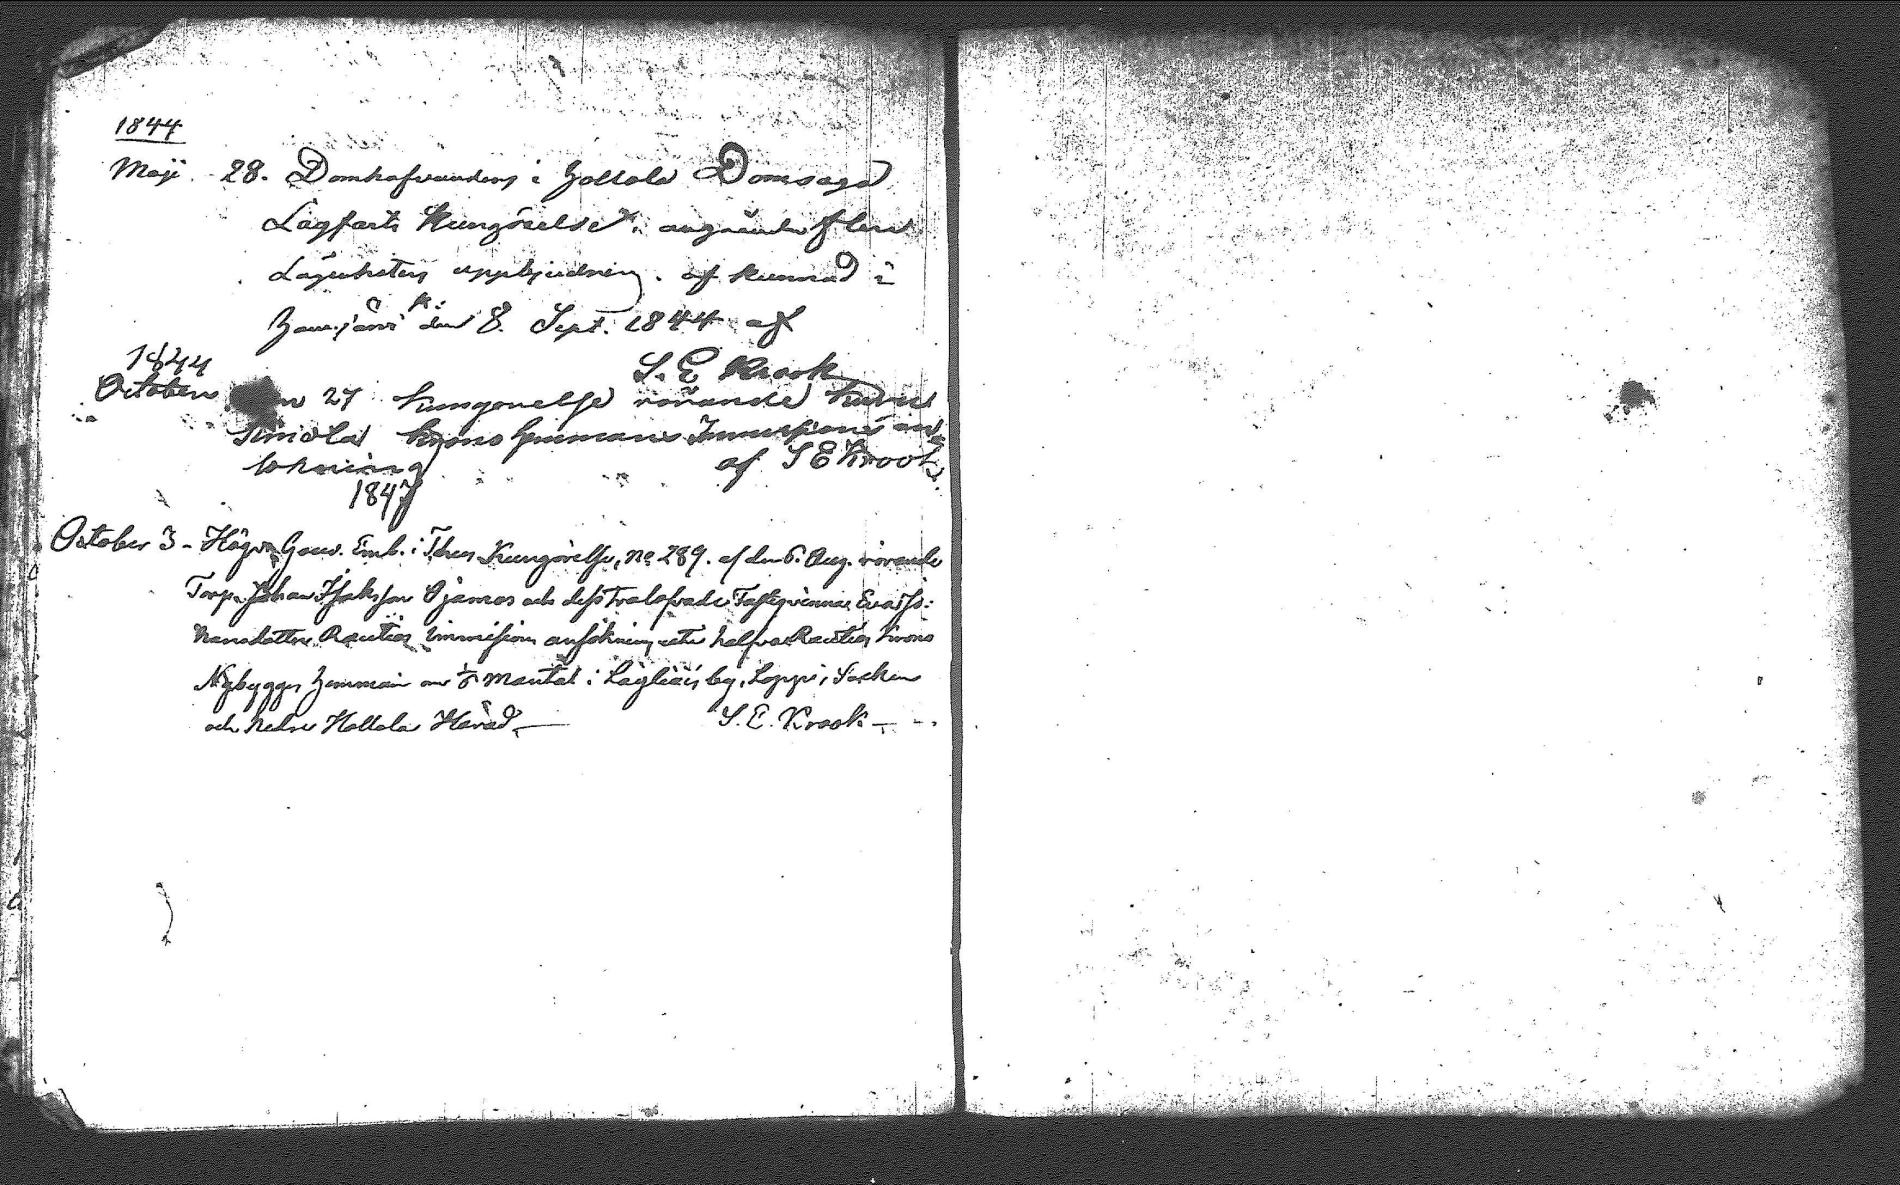 1844
Maji 28. Domhafvandens i Hollola Domsaga
Lagfarts Kungörelse angående flera
Lägenheters uppbjudning. af kunnad i
Janjärvi k: den 8. Sept. 1844 af
S. E Krook
1844
October den 27 kungörelse rörande
Simola krono hemmans Immissions an
sökning af S E Krook
1847
October 3 - Högv. Gouv. Emb. i Thus Kungörelse, No 289. af den 6. Aug. rörande
Torp. Johan Isaksson Ojamos och dess trolofvade Fästeqvinna Eva
Hansdotter Rautias immission ansökning uti halfva Rautias Krono
Nybygges Hemman om 1/8 mantal i Läyliäis by, Loppis Socken
och Nedre Hollola Härad. S. E. Krook